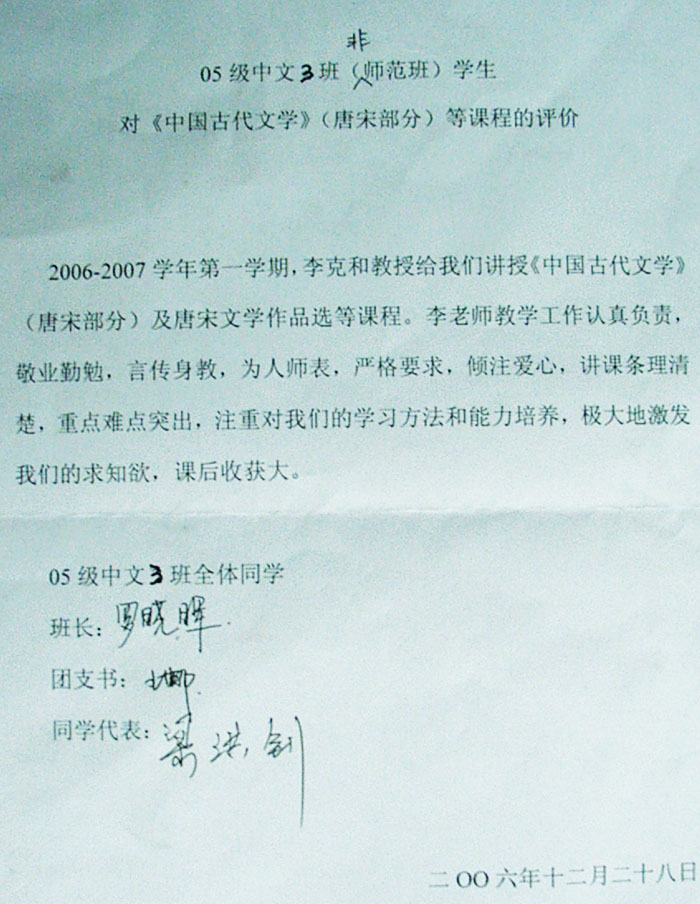 05级中文3班（非师范班）学生
对《中国古代文学》（唐宋部分）等课程的评价
2006-2007学年第一学期，李克和教授给我们讲授《中国古代文学》
（唐宋部分）及唐宋文学作品选等课程。李老师教学工作认真负责，
敬业勤勉，言传身教，为人师表，严格要求，倾注爱心，讲课条理清
楚，重点难点突出，注重对我们的学习方法和能力培养，极大地激发
我们的求知欲，课后收获大。
05级中文3班全体同学
班长：罗晓晖
团支书：
同学代表：梁洪剑
二OO六年十二月二十八日